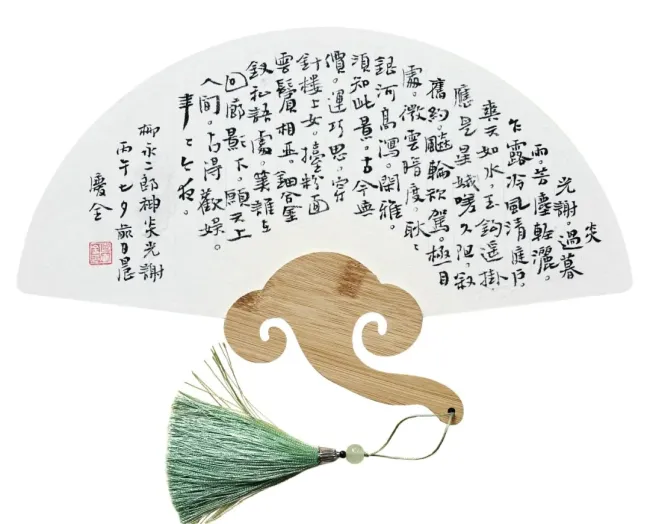 炎
光謝。過暮
雨。芳塵輕灑。
乍露冷風清庭戶
爽天如水。玉鉤遙掛。
應是星娥嗟久阻。敘
舊約。飈輪欲駕。極目
處。微雲暗度。耿〻
銀河高瀉。閑雅。
須知此景。古今無
價。運巧思。穿
針樓上女。擡粉面
雲鬟相亞。鈿合金
釵私語處。算誰在
回廊影下。願天上
人間。占得歡娛。
年〻今夜。
柳永二郎神炎光謝
丙午七夕前日晨
慶全